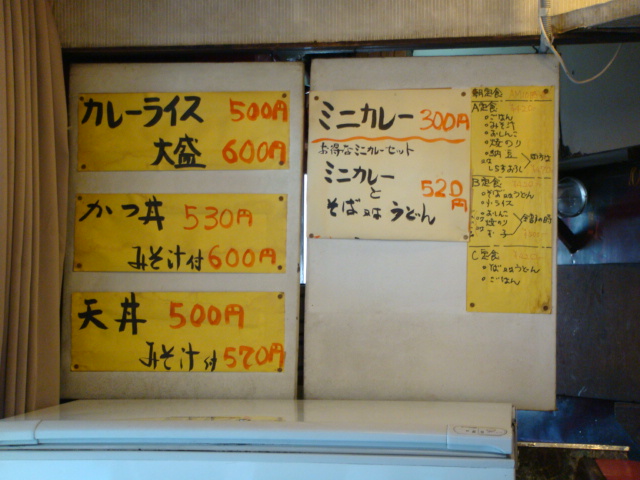 カレーライス 500円
大盛 600円
かつ丼 530円
みそ汁付 600円
天丼 500円
みそ汁付 570円
ミニカレー 300円
お得なミニカレーセット
ミニカレー
と
そば又は うどん
520円
朝定食
A定食
・ごはん
・みそ汁
・おしんこ
・焼のり
・納豆
B定食
・そば又はうどん
・小ライス
・おしんこ
・焼のり
・玉子
C定食
・そば又はうどん
・ごはん